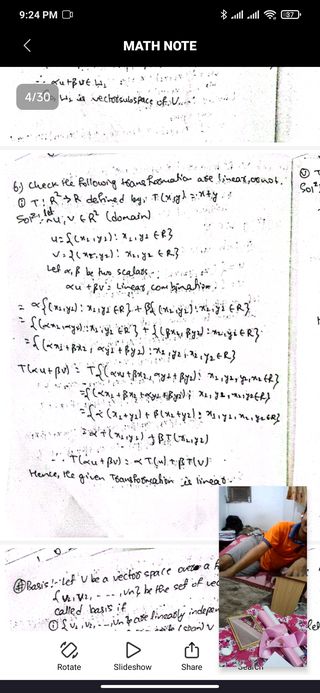 9:24 PM
87
MATH NOTE
αu+βv∈W₂
W₂ is vector subspace of V.
4/30
6) Check the following transformation are linear, or not.
① T: R²→R defined by, T(x,y) = x+y
Solⁿ:- let u,v ∈ R² (domain)
u = {(x₁,y₁) : x₁,y₁ ∈ R}
v = {(x₂,y₂) : x₂,y₂ ∈ R}
Let α,β be two scalars.
αu+βv = Linear combination.
= α{(x₁,y₁) : x₁,y₁ ∈ R} + β{(x₂,y₂) : x₂,y₂ ∈ R}
= {(αx₁,αy₁) : x₁,y₁ ∈ R} + {(βx₂,βy₂) : x₂,y₂ ∈ R}
= {(αx₁+βx₂, αy₁+βy₂) : x₁,y₁,x₂,y₂ ∈ R}
T(αu+βv) = T{(αx₁+βx₂, αy₁+βy₂) : x₁,y₁,x₂ ∈ R}
= {(αx₁+βx₂+αy₁+βy₂) : x₁,y₁,x₂,y₂ ∈ R}
= {α(x₁+y₁) + β(x₂+y₂) : x₁,y₁,x₂,y₂ ∈ R}
= αT(x₁,y₁) + βT(x₂,y₂)
∴ T(αu+βv) = αT(u)+βT(v)
Hence, the given Transformation is linear.
Solⁿ
# Basis:- Let V be a vector space over a
{v₁,v₂,----,vₙ} be the set of vec
called basis if
① {v₁,v₂,----,vₙ} are linearly indepen
Rotate
Slideshow
Share
Search